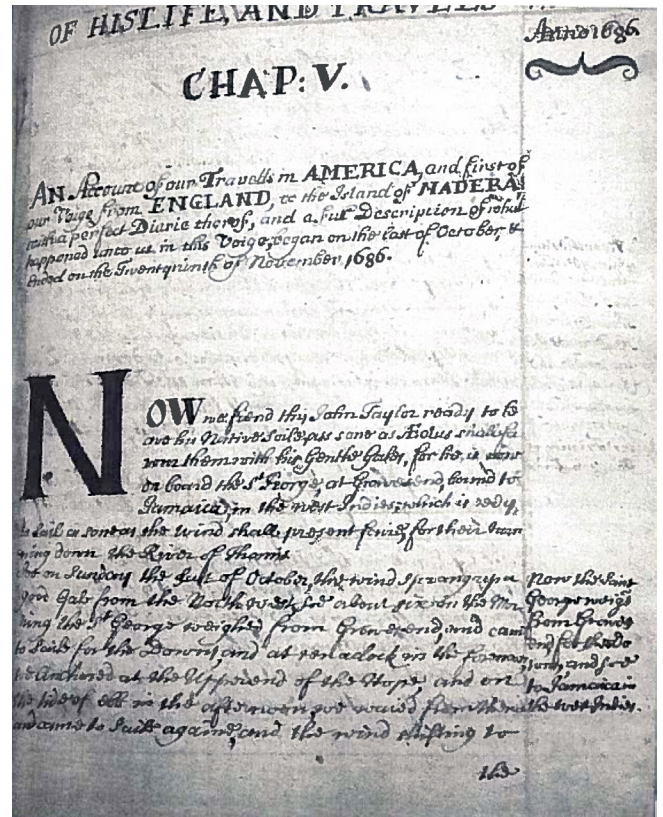 OF HIS LIFE, AND TRAVELS
Anno 1686.
CHAP: V.
AN Account of our Travells in AMERICA, and first of
our Voige from ENGLAND, to the Island of MADERA,
with a perfect Diarie therof, and a full Description of what
happened unto us in this Voige, began on the last of October, &
ended on the Twentyninth of November, 1686.
NOW we fiend this John Taylor ready to le
ave his Native Soile, as sone as Æolus shall fa
vour them with his Genthe Gales, for he, is
on board the St George, at Gravesend, bound to
Jamaica, in the west Indies, which is redy,
to sail as sone as the wind shall present for their turn
ning down the River of Thams
on Sunday the last of October, the wind sprang up a
good Gale from the Northwest, about six in the Mor
ning the St George weighed from Gravesend, and cam
to saile for the Downs, and at ten aclock in the forenoon
we Anchored at the Upper end of the Hope, and on
the tide of ebb in the afternoon we from thence
and came to saile againe, and the wind shifting to
the
Now the Saint
George weigs
from Graves
end for the do
wns, and soe
to Jamaica in
the west Indies.